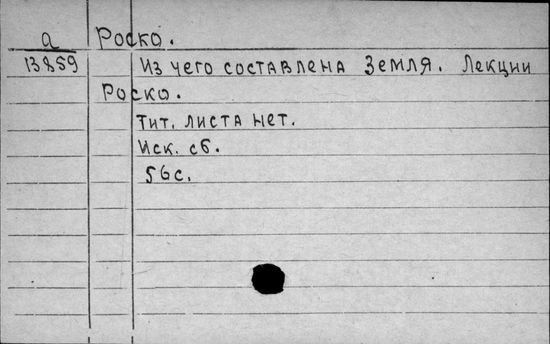 а Роско.
13859 Из чего составлена Земля. Лекции
Роско.
Тит. листа нет.
Иск. сб.
56с.